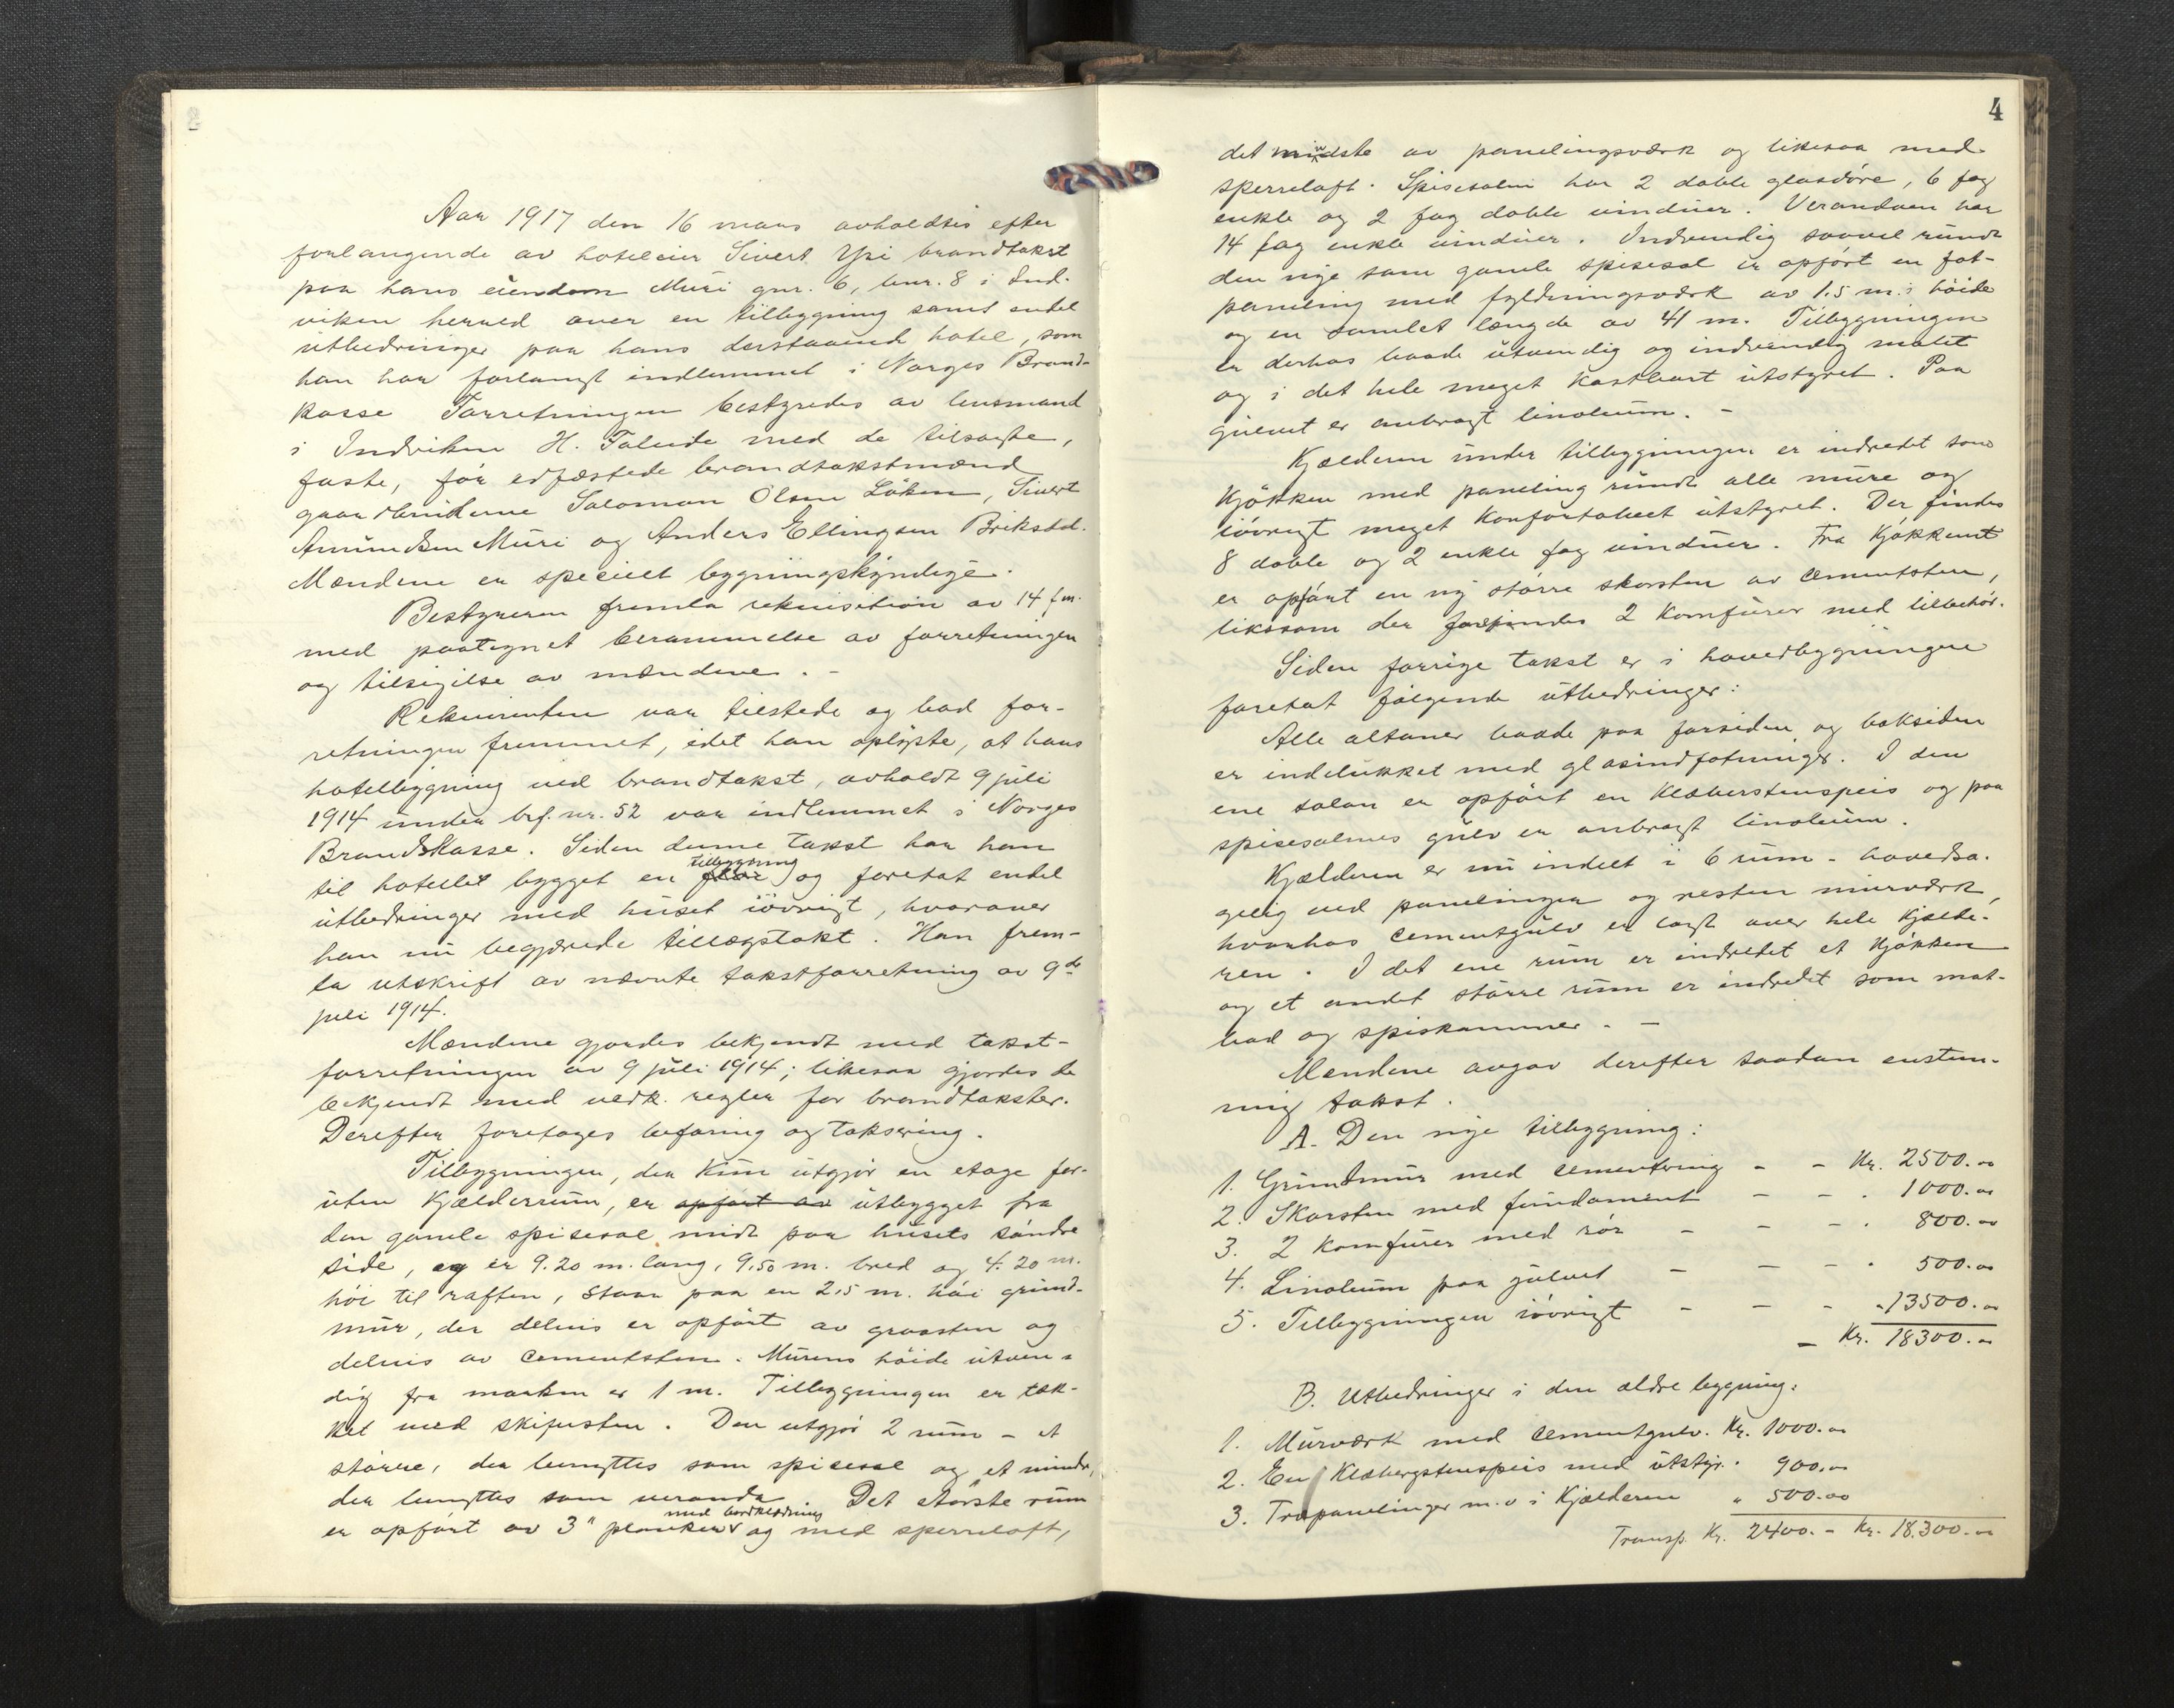 Aar 1917 den 16 mars avholdtes efter
forlangende av hoteleier Sivert Yri brandtakst
paa hans eiendom Muri gnr. 6, bnr. 8 i Ind-
viken herred over en tilbygning samt endel
utbedringer paa hans derstaaende hotel, som
han har forlangt indlemmet i Norges Brand-
kasse. Forretningen bestyredes av lensmand
i Indviken H. Taleide med de tilsagte,
faste, før edfæstede brandtakstmænd
gaardbrukerne Salomon Olsen Løken, Sivert
Amundsen Muri og Anders Ellingsen Brikstøl.
Mændene er specielt bygningskyndige.
Bestyreren fremla rekvisition av 14 f.m.
med paategnet berammelse av forretningen
og tilsigelse av mændene. -
Rekvirenten var tilstede og bad for-
retningen fremmet, idet han oplyste, at hans
hotelbygning ved brandtakst, avholdt 9 juli
1914 under brf. nr. 52 var indlemmet i Norges
Brandkasse. Siden denne takst har han
til hotellet bygget en tilbygning og foretat endel
utbedringer med huset iøvrigt, hvorover
han nu begjærede tillægstakst. Han frem-
la utskrift av nævnte takstforretning av 9de
juli 1914.
Mændene gjordes bekjendt med takst-
forretningen av 9 juli 1914; likesaa gjordes de
bekjendt med vedk. regler for brandtakster.
Derefter foretoges befaring og taksering.
Tilbygningen, der kun utgjør en etage for-
uten kjælderrum, er opført av utbygget fra
den gamle spisesal midt paa husets søndre
side, og er 9.20 m. lang, 9.50 m. bred og 4.20 m.
høi til raften, staar paa en 2,5 m. høi grund-
mur, der delvis er opført av graasten og
delvis av cementsten. Murens høide utven-
dig fra marken er 1 m. Tilbygningen er tæk-
ket med skifersten. Den utgjør 2 rum - et
større, der benyttes som spisesal og et mindre,
der benyttes som veranda. Det største rum
er opført av 3" planker med bordklædning og med sperreloft,
4
det mindste av panelingsværk og likesaa med
sperreloft. Spisesalen har 2 doble glasdøre, 6 fag
enkle og 2 fag doble vinduer. Verandaen har
14 fag enkle vinduer. Indvendig saavel rundt
den nye som gamle spisesal er opført en fot-
paneling med fyldningsværk av 1.5 m. i høide
og en samlet længde av 41 m. Tilbygningen
er derhos baade utvendig og indvendig malet
og i det hele meget kostbart utstyret. Paa
gulvet er anbragt linoleum. -
Kjælderen under tilbygningen er indredet som
kjøkken med paneling rundt alle mure og
iøvrigt meget konfortabelt utstyret. Der findes
8 doble og 2 enkle fag vinduer. Fra kjøkkenet
er opført en ny større skorsten av cementsten,
likesom der forefindes 2 komfurer med tilbehør.
Siden forrige takst er i hovedbygningen
foretat følgende utbedringer:
Alle altaner baade paa forsiden og baksiden
er indelukket med glasindfatninger. I den
ene salon er opført en klæberstenspeis og paa
spisesalens gulv er anbragt linoleum.
Kjælderen er nu indelt i 6 rum - hovedsa-
gelig ved panelinger og resten murværk,
hvorhos cementgulv er lagt over hele kjælde-
ren. I det ene rum er indredet et kjøkken
og et andet større rum er indredet som mat-
bod og spiskammer. -
Mændene avgav derefter saadan enstem-
mig takst.
A. Den nye tilbygning:
1. Grundmur med cementering - - Kr. 2500.00
2. Skorsten med fundament - - . 1000.00
3. 2 komfurer med rør - - - . 800.00
4. Linoleum paa gulvet - - - . 500.00
5. Tilbygningen iøvrigt - - - . 13500.00
- Kr. 18300.00
B. Utbedringer i den ældre bygning:
1. Murværk med cementgulv. Kr. 1000.00
2. En klæbergstenspeis med utstyr. . 900.00
3. Træpanelinger m.v i kjælderen " 500.00
Transp. Kr. 2400.- Kr. 18.300.00